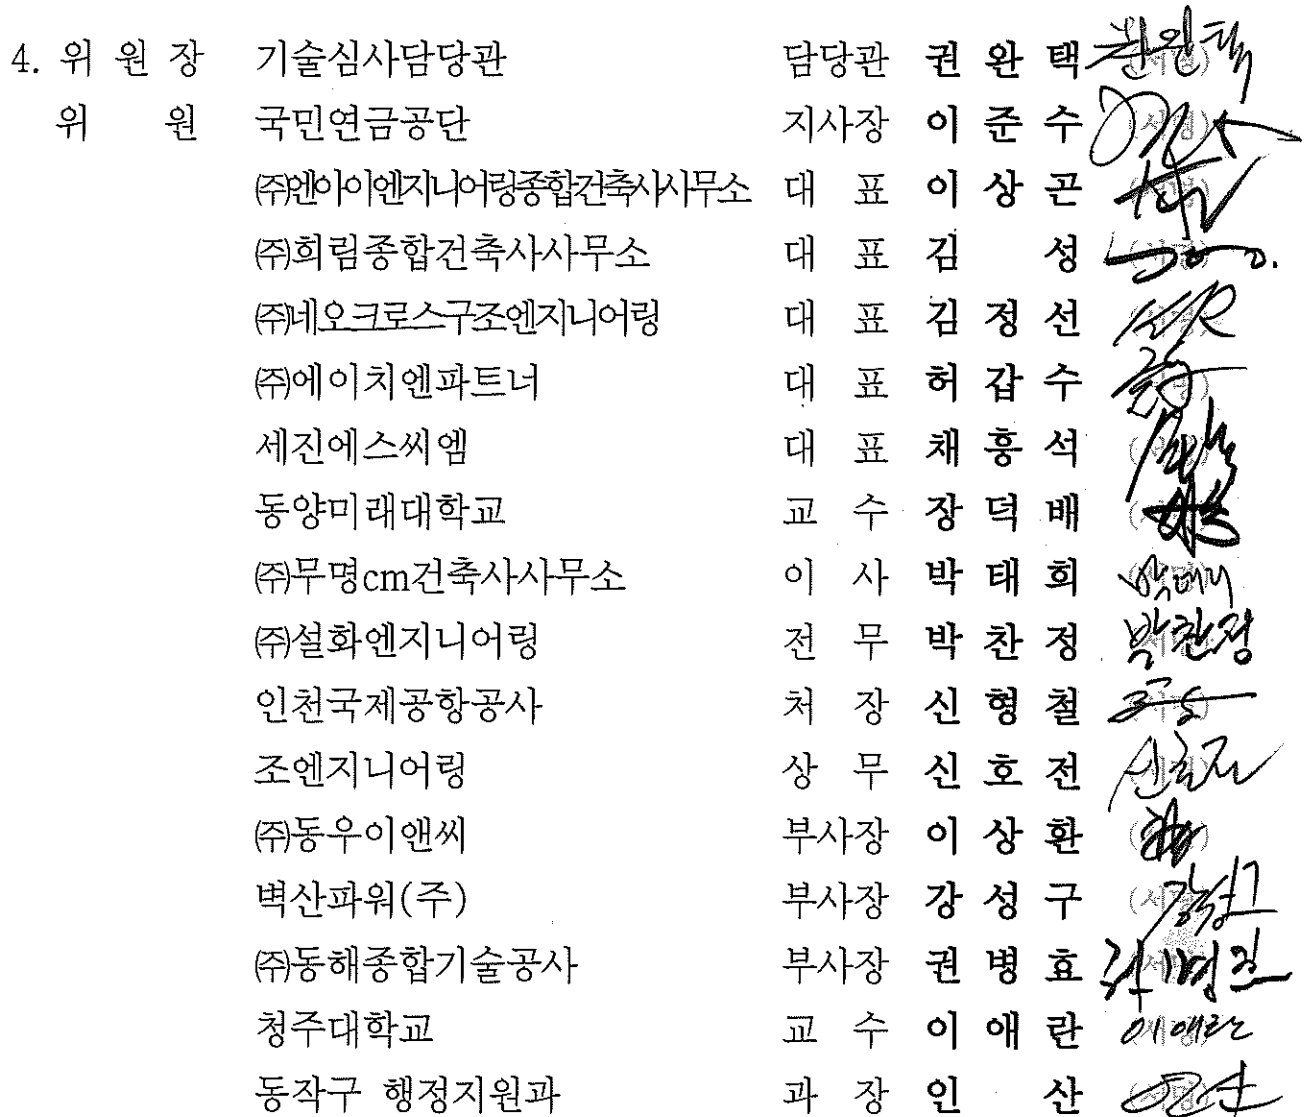 4. 위 원 장 기술심사담당관 담당관 권 완 택 (서명) 권완택
위 원 국민연금공단 지사장 이 준 수 (서명)
㈜엔아이엔지니어링종합건축사사무소 대 표 이 상 곤
㈜희림종합건축사사무소 대 표 김 성
㈜네오크로스구조엔지니어링 대 표 김 정 선
㈜에이치엔파트너 대 표 허 갑 수
세진에스씨엠 대 표 채 흥 석
동양미래대학교 교 수 장 덕 배
㈜무명cm건축사사무소 이 사 박 태 희
㈜설화엔지니어링 전 무 박 찬 정 박찬정
인천국제공항공사 처 장 신 형 철
조엔지니어링 상 무 신 호 전 신호전
㈜동우이앤씨 부사장 이 상 환
벽산파워(주) 부사장 강 성 구 (서명) 강성구
㈜동해종합기술공사 부사장 권 병 효
청주대학교 교 수 이 애 란 이애란
동작구 행정지원과 과 장 인 산